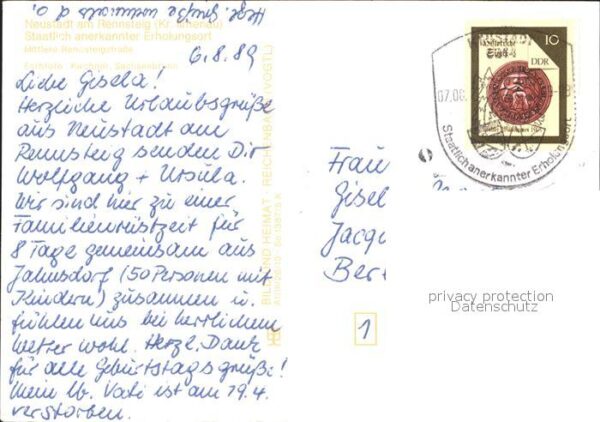 Herzl. Grüße
Neustadt am Rennsteig (Kr. Ilmenau)
Staatlich anerkannter Erholungsort
Mittlere Rennsteigstraße
6.8.89
Liebe Gisela!
Herzliche Urlaubsgrüße
aus Neustadt am
Rennsteig senden Dir
Wolfgang + Ursula.
Wir sind hier zu einer
Familienrüstzeit für
8 Tage gemeinsam aus
Jahnsdorf (50 Personen mit
Kindern) zusammen u.
fühlen uns bei herrlichem
Wetter wohl. Herzl. Dank
für alle Geburtstagsgrüße!
Mein lb. Vati ist am 19.4.
verstorben.
BILD UND HEIMAT REICHENBACH (VOGTL)
10
DDR
07.08.
Staatlich anerkannter Erholungsort
Frau
Gisel
Jacq
Ber
1
privacy protection
Datenschutz